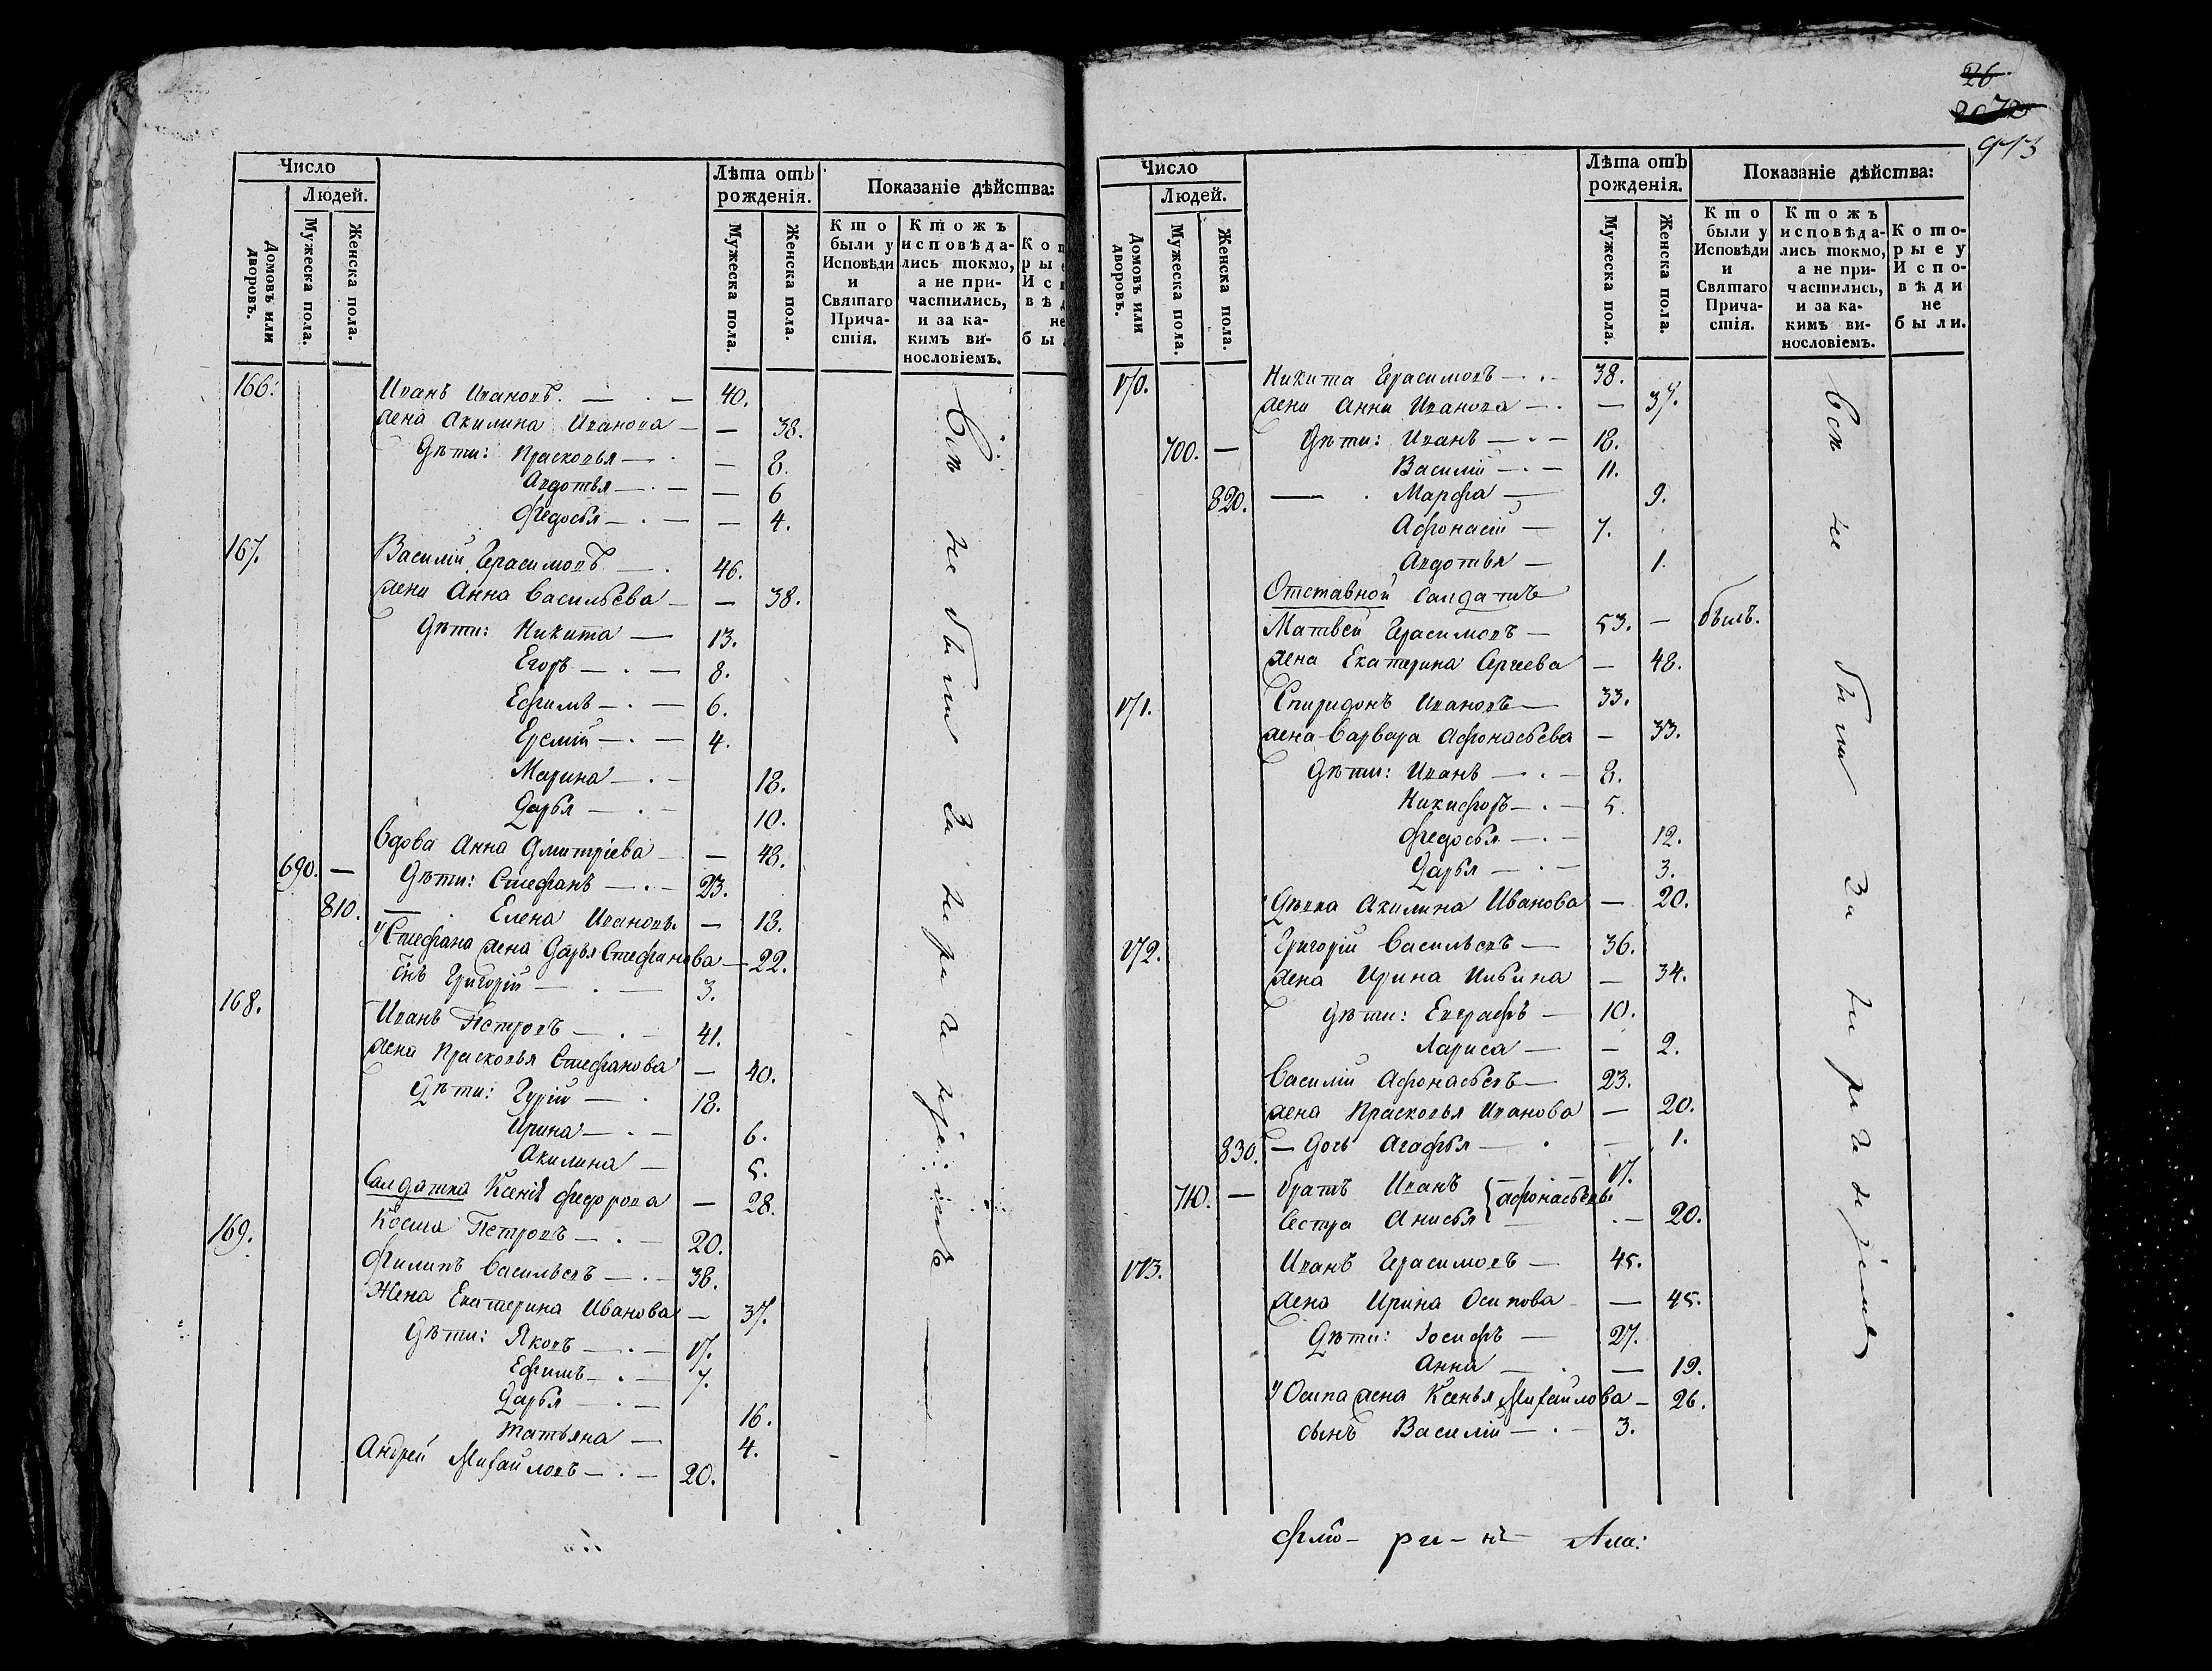 Число
Людей.
Лѣта отъ рожденія.
Показаніе дѣйства:
Домовъ или дворовъ.
Мужеска пола.
Женска пола.
Мужеска пола.
Женска пола.
Кто были у Исповѣди и Святаго Причастія.
Ктожъ исповѣдались токмо, а не причастились, и за какимъ винословіемъ.
166. Иванъ Ивановъ. 40.
жена Акилина Иванова — 38.
Дѣти: Прасковья — 8.
Авдотья — 6
Федосья — 4.
167. Василій Герасимовъ 46.
жена Анна Васильева — 38.
Дѣти: Никита — 13.
Егоръ — 8.
Ефимъ — 6.
Еремій — 4.
Марина — 18.
Дарья — 10.
Вдова Анна Дмитріева — 48.
690. — Дѣти: Стефанъ — 23.
810. — Елена Иванова — 13.
У Стефана жена Дарья Стефанова — 22.
Сынъ Григорій — 3.
168. Иванъ Петровъ — 41.
жена Прасковья Стефанова — 40.
Дѣти: Гурій — 18.
Ирина — 6.
Акилина — 5.
Салдатка Ксенія Федорова — 28.
169. Косма Петровъ — 20.
Филипъ Васильевъ — 38.
Жена Екатерина Иванова — 37.
Дѣти: Яковъ — 17.
Ефимъ — 7.
Дарья — 16.
Татьяна — 4.
Андрей Михайловъ — 20.
Всѣ не были за
26
973
Число
Людей.
Лѣта отъ рожденія.
Показаніе дѣйства:
Домовъ или дворовъ.
Мужеска пола.
Женска пола.
Мужеска пола.
Женска пола.
Кто были у Исповѣди и Святаго Причастія.
Ктожъ исповѣдались токмо, а не причастились, и за какимъ винословіемъ.
Которые у Исповѣди не были.
170. Никита Герасимовъ — 38.
жена Анна Иванова — 37.
700. — Дѣти: Иванъ — 18.
Василій — 11.
820. — Марфа — 9.
Афонасій — 7.
Авдотья — 1.
Отставной салдатъ
Матвей Герасимовъ — 53. — былъ.
жена Екатерина Сергеева — 48.
171. Спиридонъ Ивановъ — 33.
жена Варвара Афонасьева — 33.
Дѣти: Иванъ — 8.
Никифоръ — 5.
Федосья — 12.
Дарья — 3.
Дѣвка Акилина Иванова — 20.
172. Григорій Васильевъ — 36.
жена Ирина Ильина — 34.
Дѣти: Евграфъ — 10.
Лариса — 2.
Василій Афонасьевъ — 23.
жена Прасковья Иванова — 20.
830. — Дочь Агафья — 1.
710. — братъ Иванъ } Афонасьевы 17.
Сестра Анисья — 20.
173. Иванъ Герасимовъ — 45.
жена Ирина Осипова — 45.
Дѣти: Іосифъ — 27.
Анна — 19.
У Осипа жена Ксенья Михайлова — 26.
сынъ Василій — 3.
Всѣ не были за